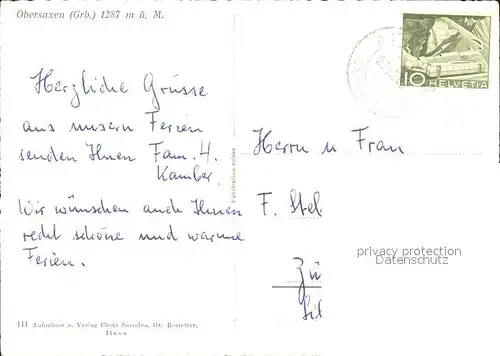 Obersaxen (Grb.) 1287 m ü. M.
10 HELVETIA
Herzliche Grüsse
aus unsern Ferien
senden Ihnen Fam. H.
Kamber.
Wir wünschen auch Ihnen
recht schöne und warme
Ferien.
Herrn u Frau
F. Stel
privacy protection
Datenschutz
Zü
111 Aufnahme u. Verlag Photo Surselva, Hs. Rostetter,
Ilanz